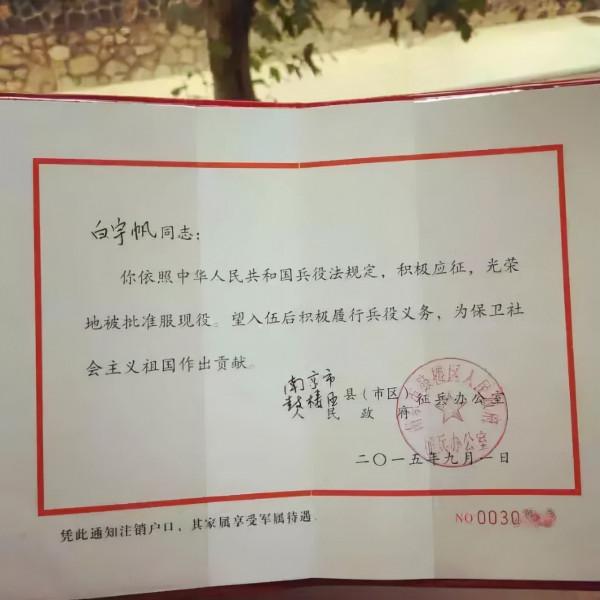 白宇帆同志:
你依照中华人民共和国兵役法规定，积极应征，光荣
地被批准服现役。望入伍后积极履行兵役义务，为保卫社
会主义祖国作出贡献。
南京市
鼓楼区 县（市区）征兵办公室
人民政府
二〇一五年九月一日
南京市鼓楼区人民政府
征兵办公室
凭此通知注销户口，其家属享受军属待遇.
NO 0030